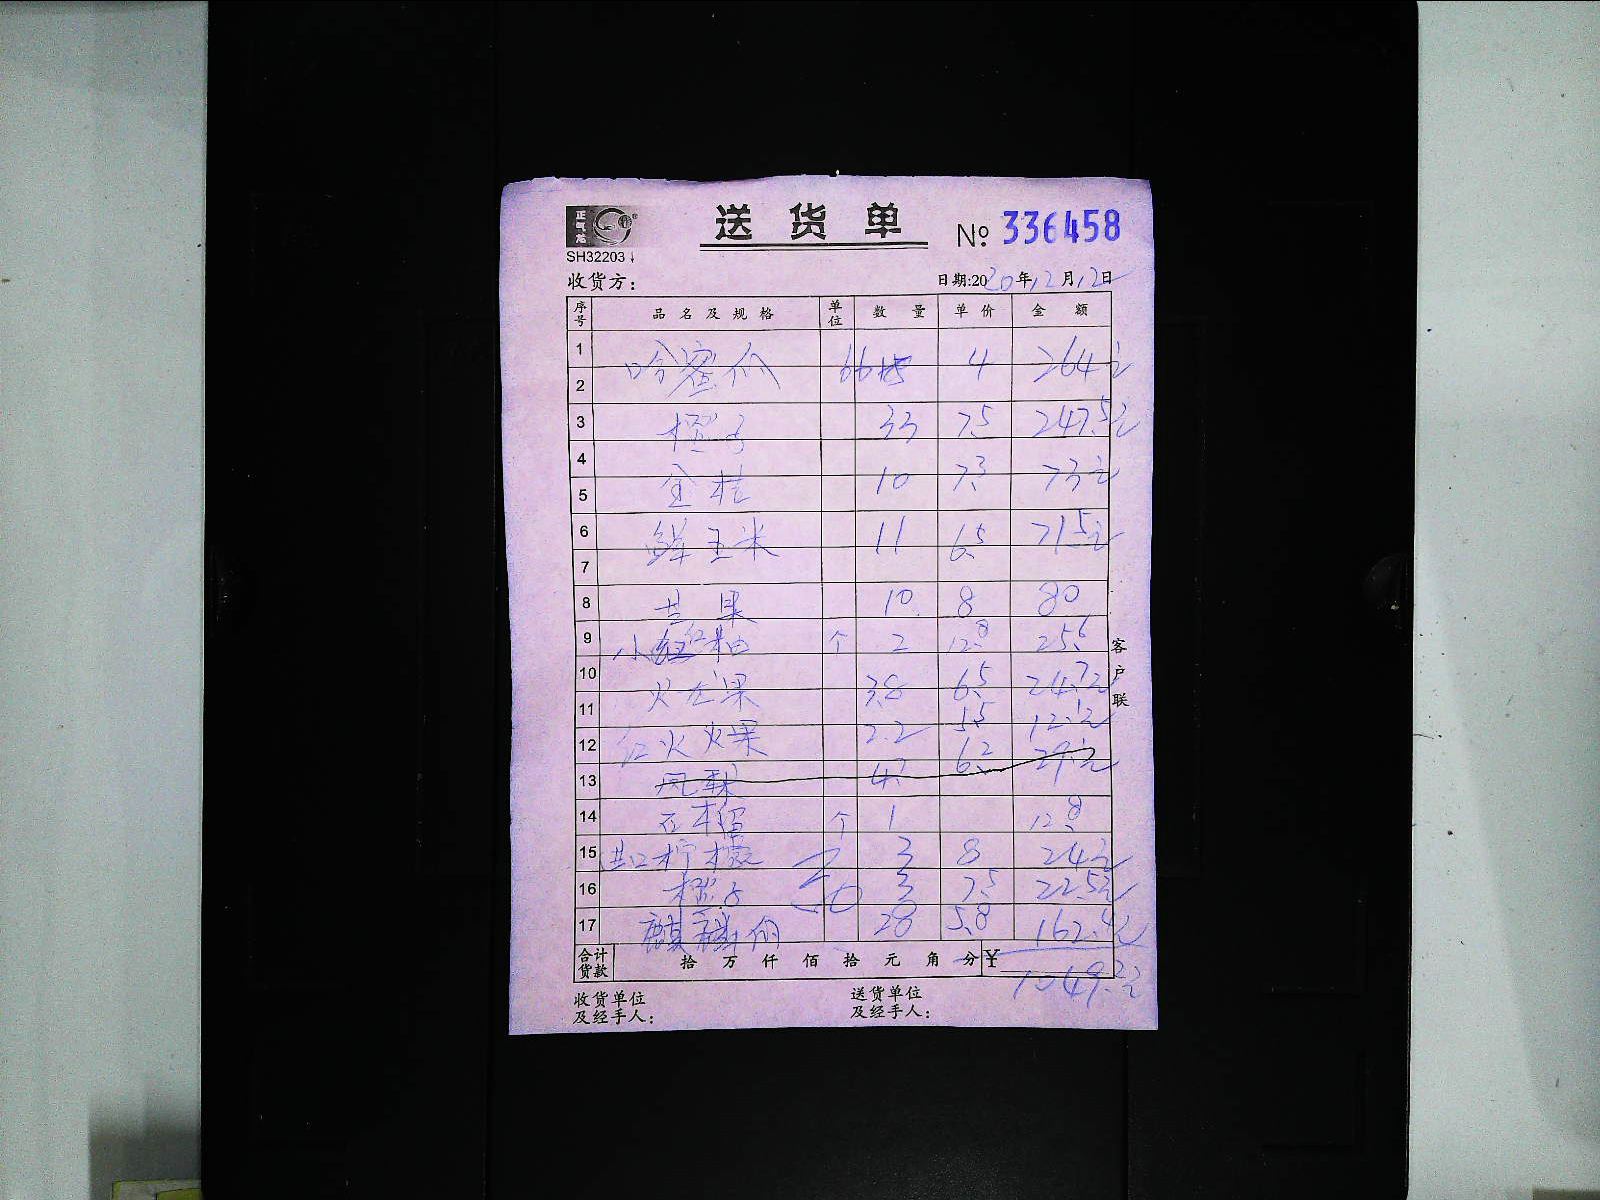 正气龙
送货单 № 336458
SH32203
收货方： 日期:2020年12月12日
序号 品名及规格 单位 数量 单价 金额
1
哈蜜瓜 66 4 264元
2
3 橙子 33 7.5 247.5元
4
金桔 10 7.3 73元
5
6 鲜玉米 11 6.5 71.5元
7
8 芒果 10 8 80
9 小红柚 个 2 12.8 25.6
10 火龙果 3.8 6.5 24.7元
11 红火火果 2.2 5.5 12.1元
12
13 凤梨 4.7 6.2 29.1元
14 石榴 个 1 12.8
15 进口柠檬 3 8 24元
16 橙子 3 7.5 22.5元
17 麒麟瓜 28 5.8 162.4元
合计货款 拾 万 仟 佰 拾 元 角 分 ¥ 1049.2元
收货单位及经手人： 送货单位及经手人：
客户联